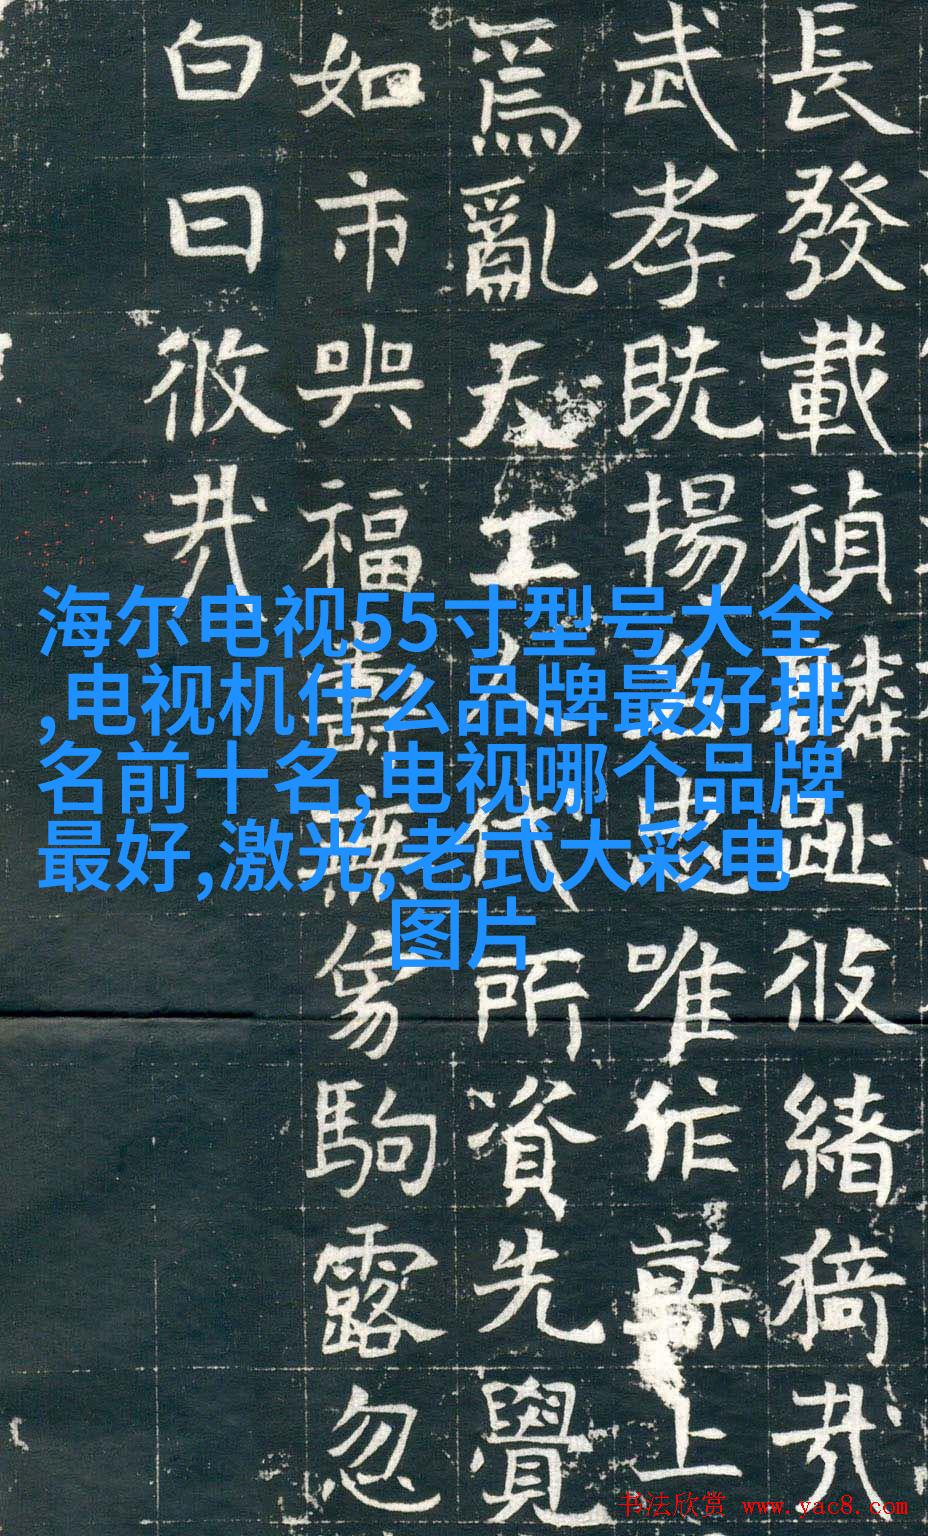 長發載禎麟趾彼緒猗哉
武孝旣揚忠唯作幹上
爲亂天工人代所資先覺
如市與福壽無象駒露忽
白日攸哉
海尔电视55寸型号大全
,电视机什么品牌最好排
名前十名,电视哪个品牌
最好,激光,老式大彩电
图片
书法欣赏 www.yac8.com